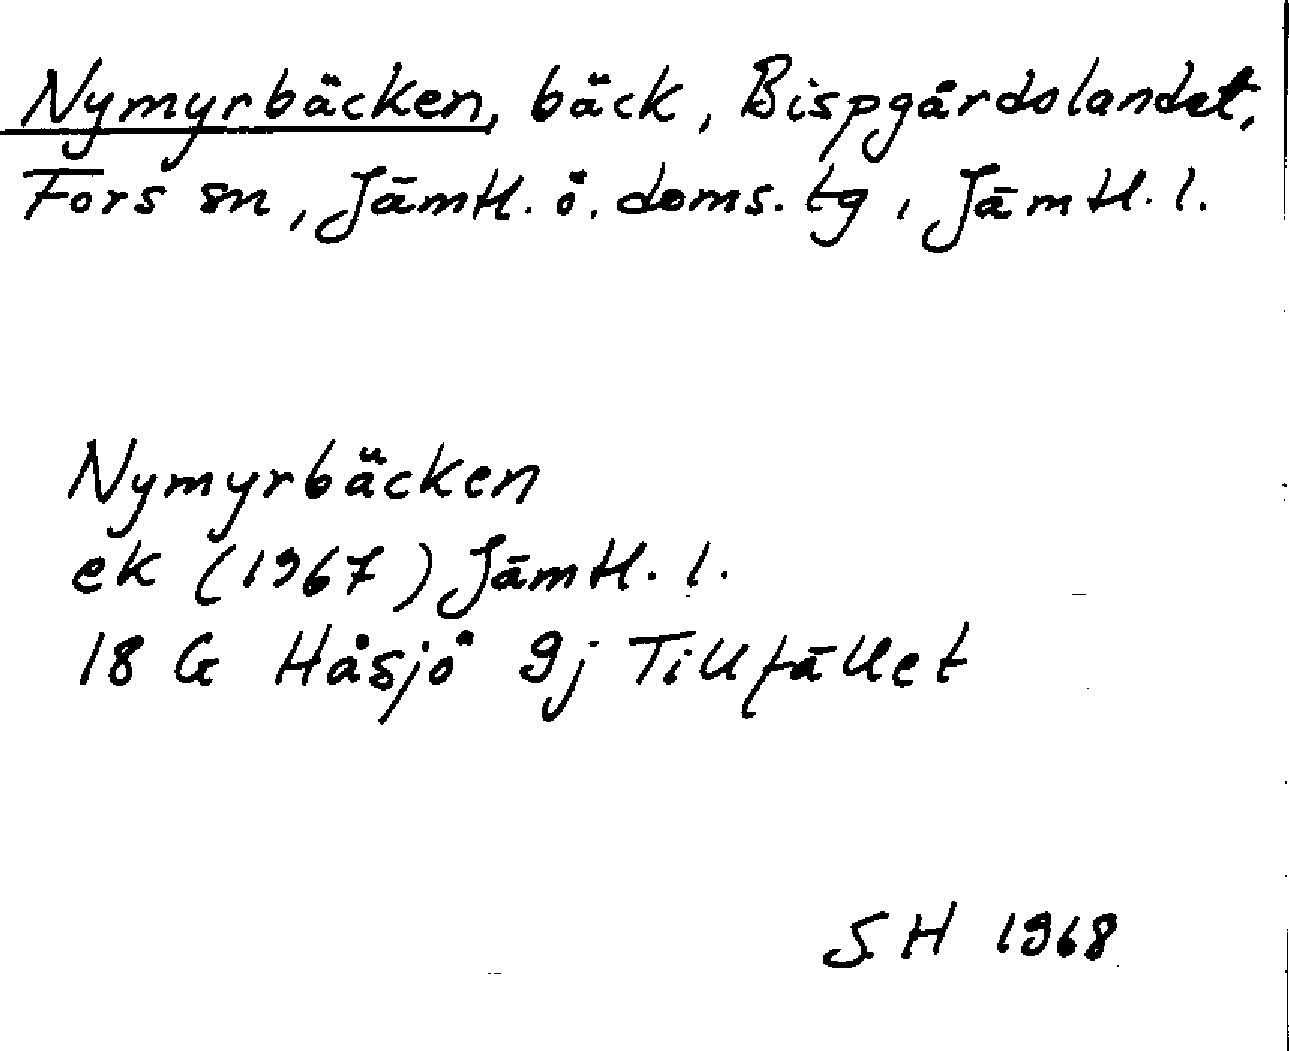 Nymyrbäcken, bäck, Bispgårdslandet,
Fors sn, Jämtl. ö. doms. tg, Jämtl. l.
Nymyrbäcken
ek (1967) Jämtl. l.
18 G Håsjö 9j Tillfället
SH 1968